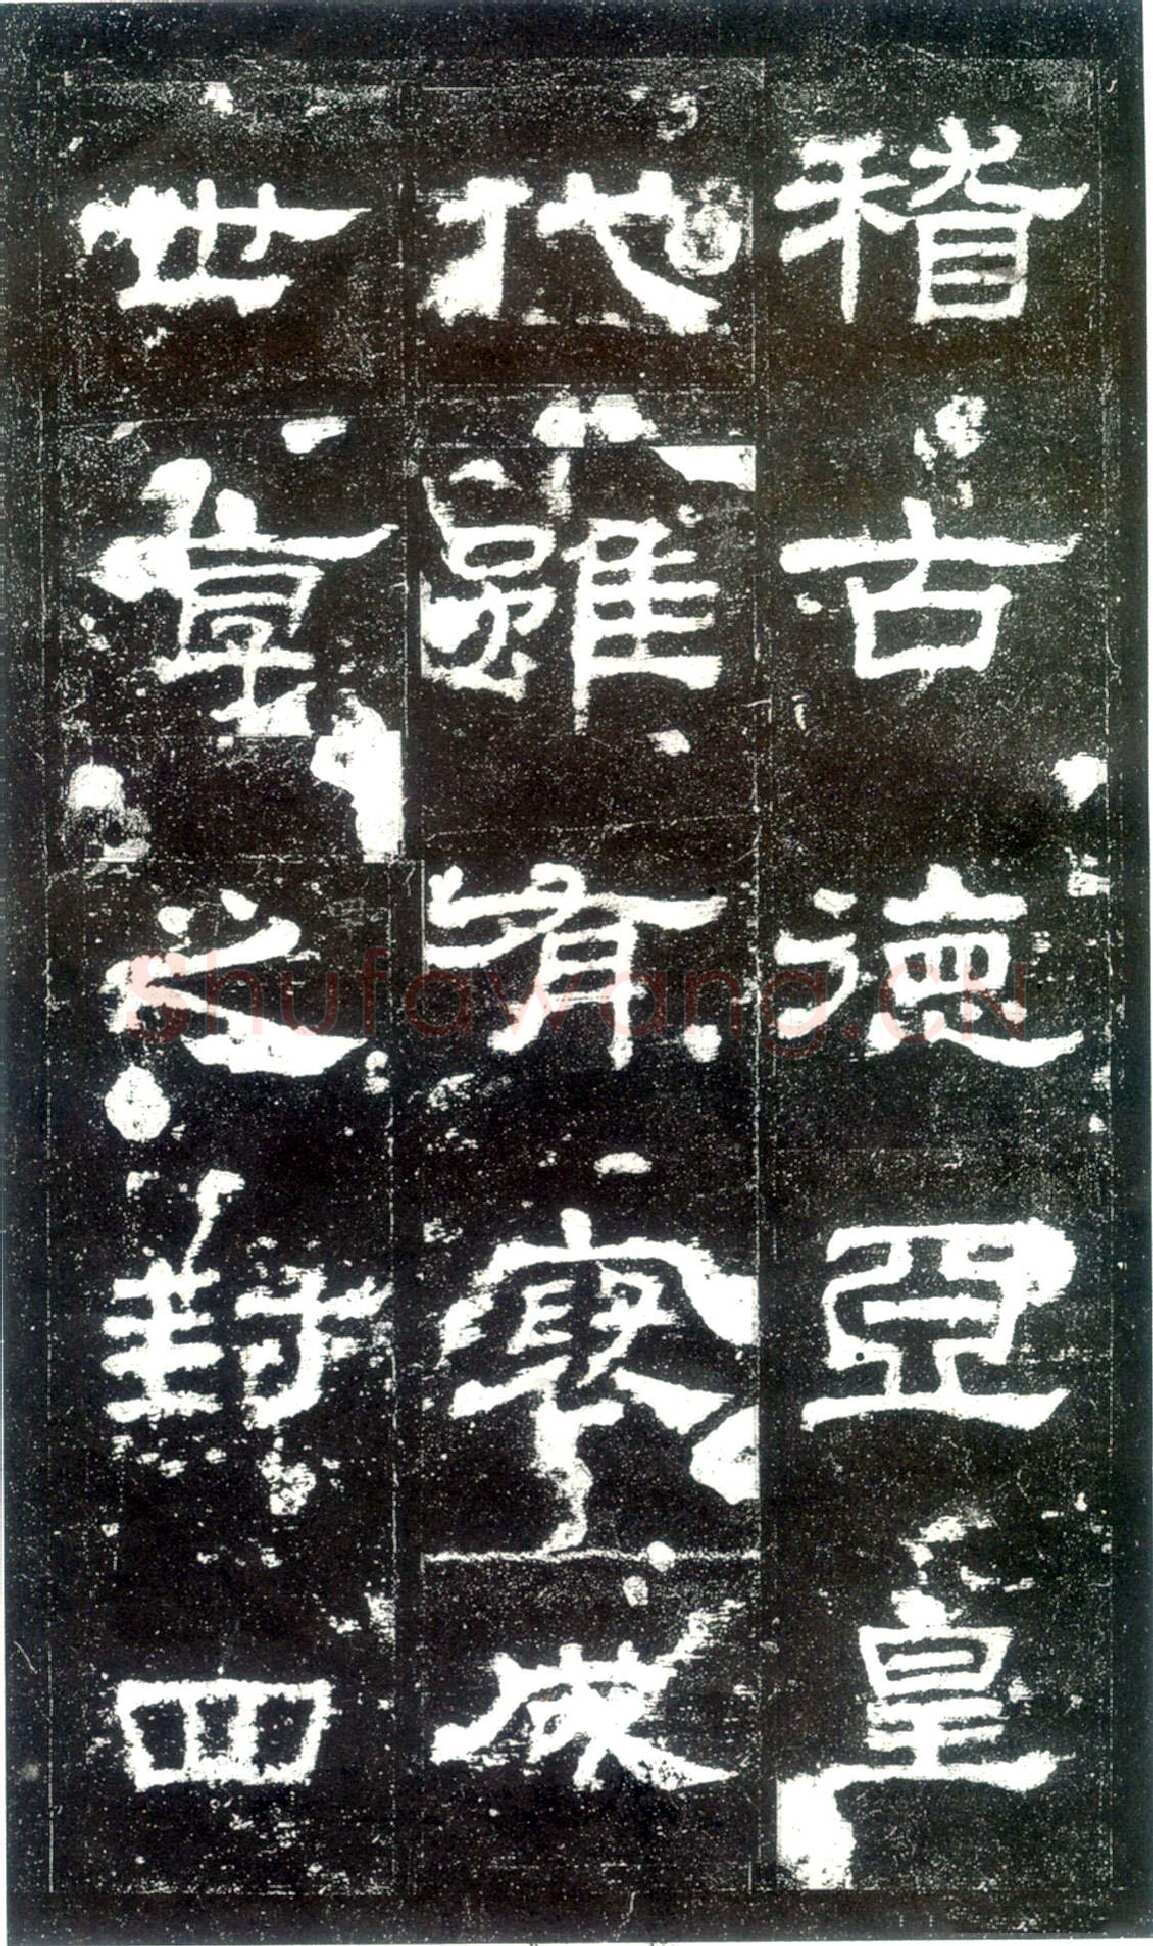 稽古德亞皇
代雖有褒成
世享之封四
Shufawang.CN